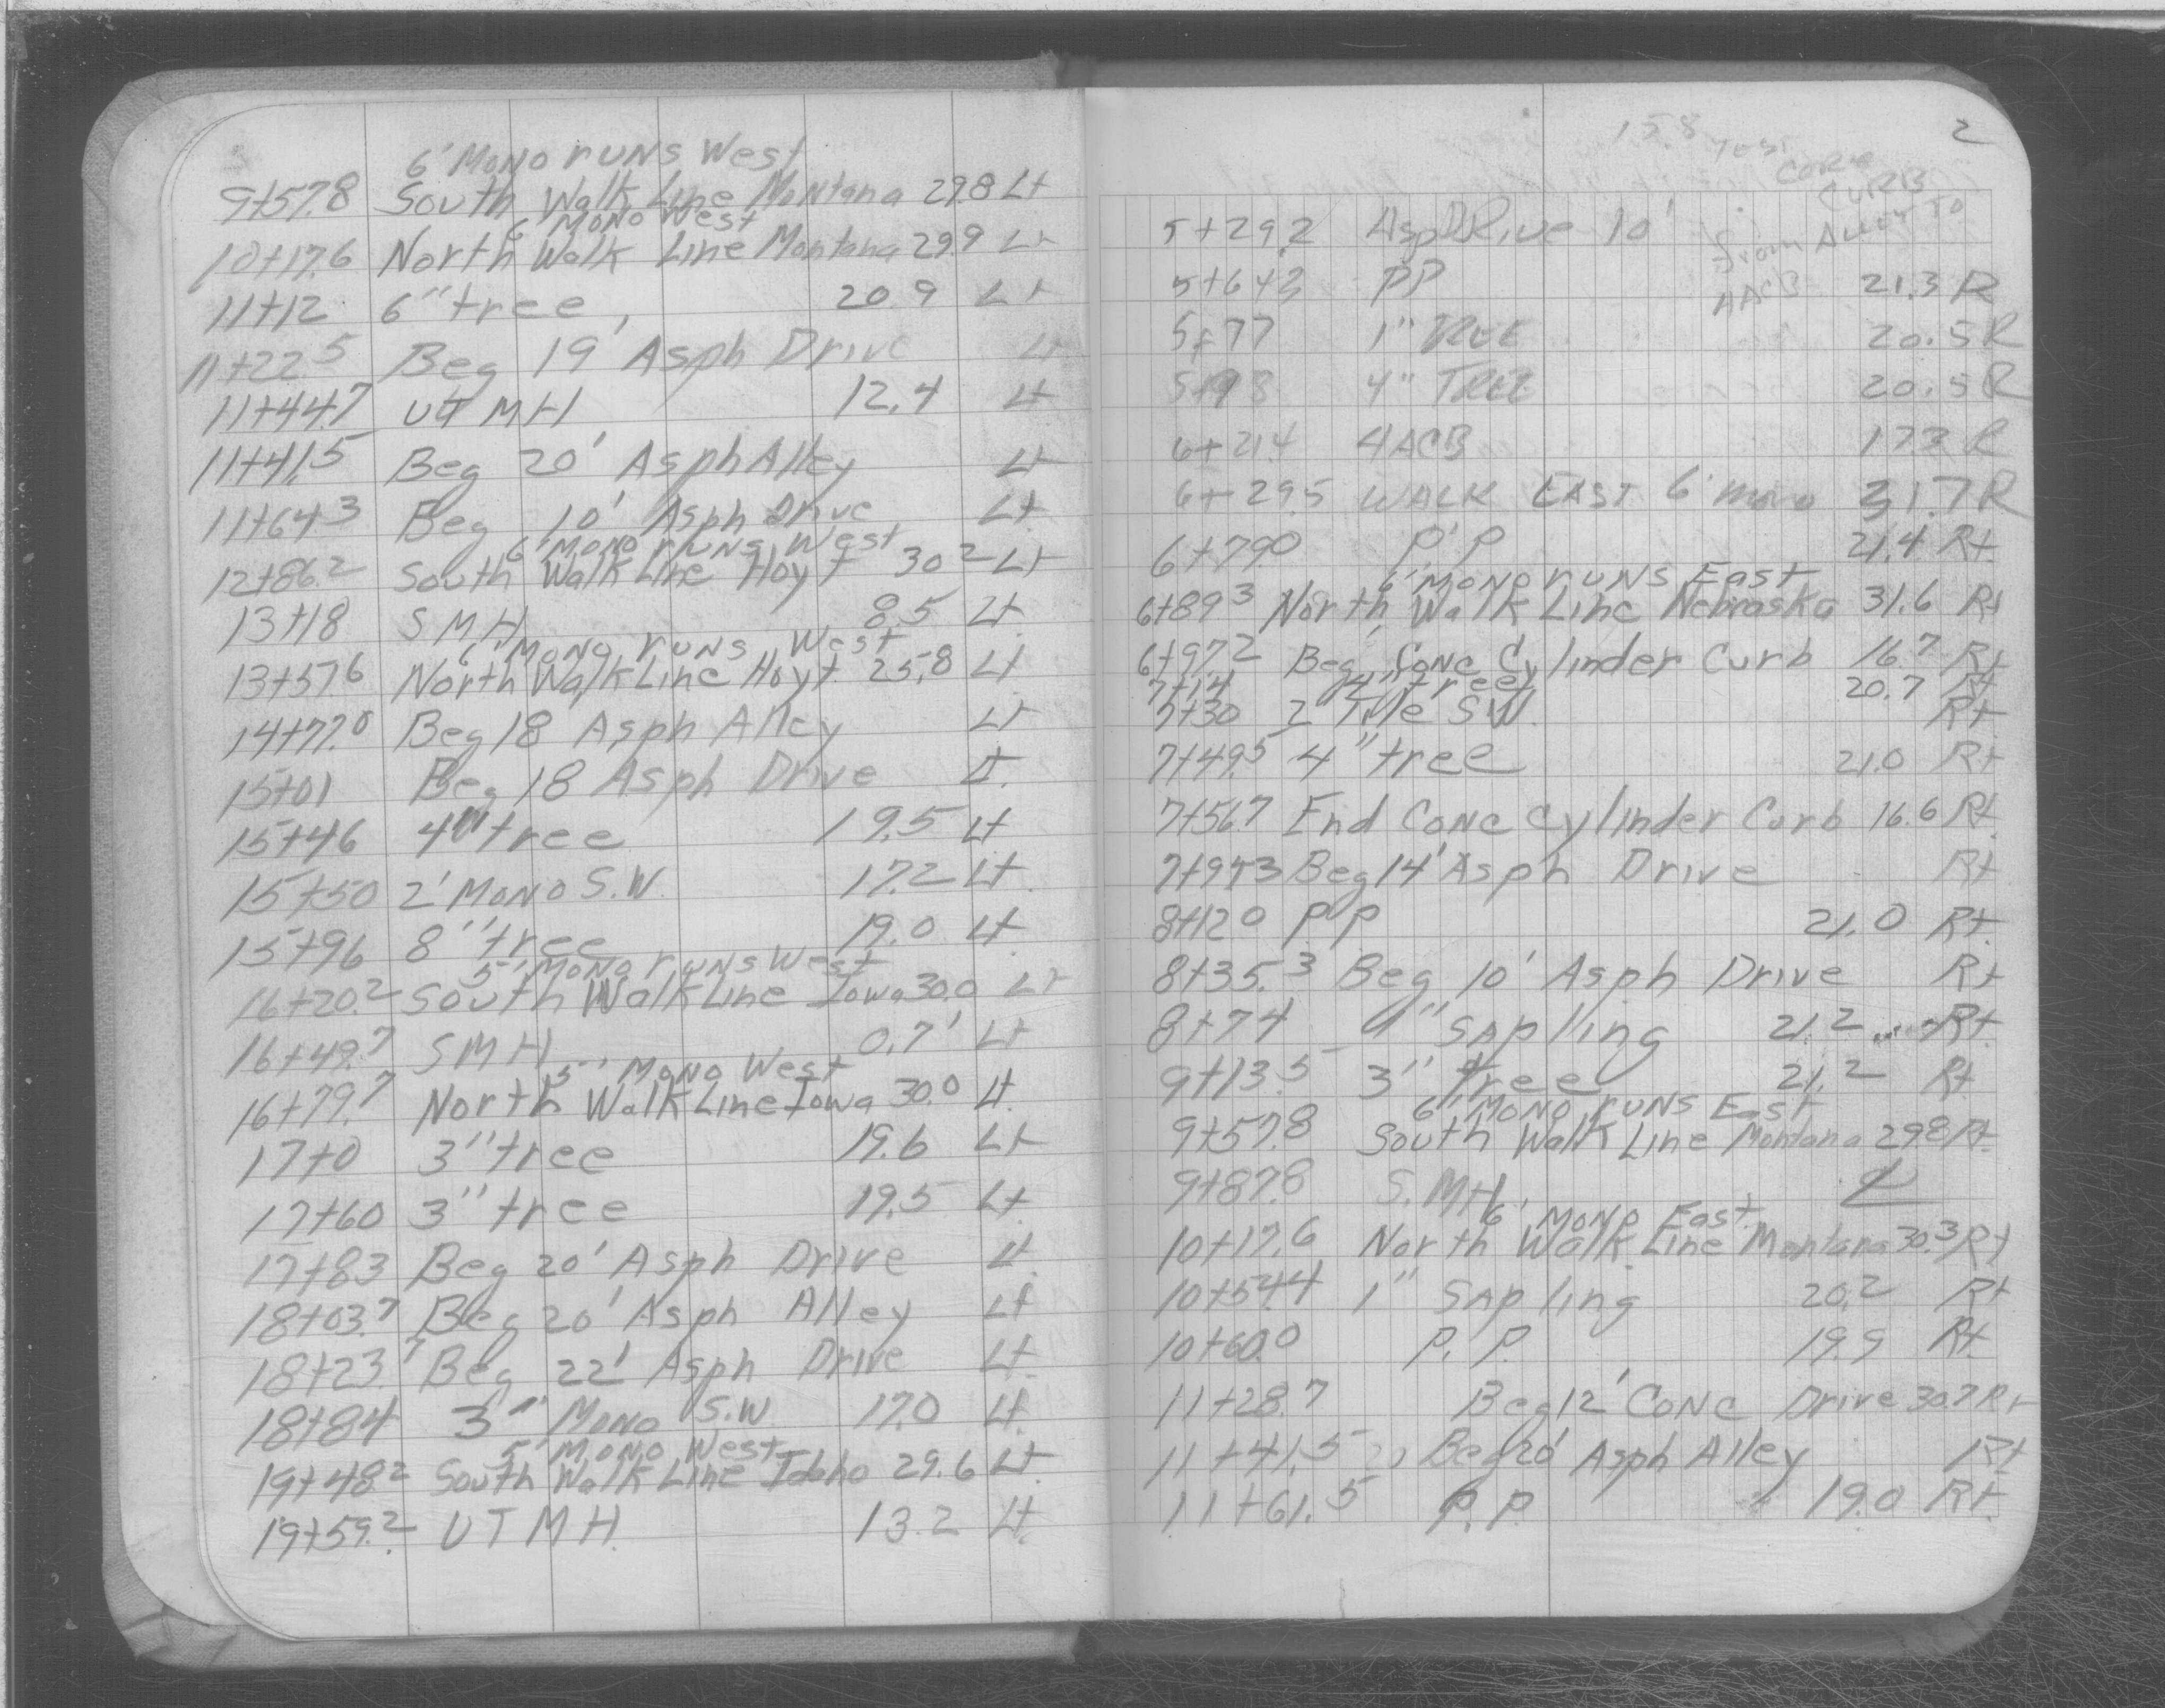 6' Mono runs West
9+57.8 South Walk Line Montana 29.8 Lt
6' Mono West
10+17.6 North Walk Line Montana 29.9 Lt
11+12 6" tree, 20.9 Lt
11+22.5 Beg 19' Asph Drive Lt
11+44.7 UT MH 12.4 Lt
11+41.5 Beg 20' Asph Alley Lt
11+64.3 Beg 10' Asph Drive Lt
6' Mono runs West
12+86.2 South Walk Line Hoyt 30.2 Lt
13+18 SMH 8.5 Lt
6' Mono runs West
13+57.6 North Walk Line Hoyt 25.8 Lt
14+77.0 Beg 18 Asph Alley Lt
15+01 Beg 18 Asph Drive Lt.
15+46 4" tree 19.5 Lt
15+50 2' Mono S.W. 17.2 Lt.
15+96 8" tree 19.0 Lt
5' Mono runs West
16+20.2 South Walk Line Iowa 30.0 Lt
16+49.7 SMH 0.7' Lt
5' Mono West
16+79.7 North Walk Line Iowa 30.0 Lt.
17+0 3" tree 19.6 Lt
17+60 3" tree 19.5 Lt.
17+83 Beg 20' Asph Drive Lt.
18+03.7 Beg 20' Asph Alley Lt
18+23.7 Beg 22' Asph Drive Lt.
18+84 3" Mono S.W 17.0 Lt.
5' Mono West
19+48.2 South Walk Line Idaho 29.6 Lt.
19+59.2 UT MH 13.2 Lt.
2
15.8
CURB
from ALLEY TO
HACB
5+29.2 Asp DRive 10'
5+64.3 PP 21.3 R
5+77 1" TREE 20.5 R
5+98 4" TREE 20.5 R
6+21.4 HACB 17.3 R
6+29.5 WALK EAST 6' mono 31.7 R
6+79.0 P.P 21.4 Rt
6" Mono runs East
6+89.3 North Walk Line Nebraska 31.6 Rt
6+97.2 Beg Conc Cylinder Curb 16.7 Rt
7+14 tree 20.7 Rt
7+30 2' Tile S.W. Rt
7+49.5 4" tree 21.0 Rt
7+56.7 End Conc Cylinder Curb 16.6 Rt.
7+94.3 Beg 14' Asph Drive Rt
8+12.0 PP 21.0 Rt.
8+35.3 Beg 10' Asph Drive Rt
8+74 1" Sapling 21.2 Rt.
9+13.5 3" tree 21.2 Rt
6' Mono runs East
9+57.8 South Walk Line Montana 29.8 Rt
9+87.8 S.MH ℄
6' Mono East
10+17.6 North Walk Line Montana 30.3 Rt
10+54.4 1" Sapling 20.2 Rt
10+60.0 P.P. 19.9 Rt.
11+28.7 Beg 12' Conc Drive 30.7 Rt
11+41.5 Beg 20' Asph Alley Rt
11+61.5 P.P 19.0 Rt.